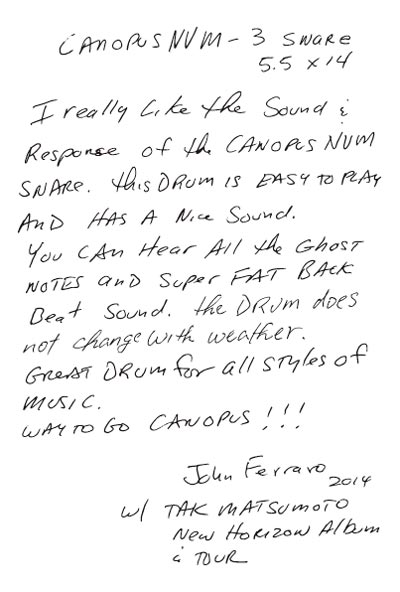 CANOPUS NVM - 3 SNARE
5.5 x 14
I really Like the Sound &
Response of the CANOPUS NVM
SNARE. this DRUM IS EASY TO PLAY
AND HAS A Nice Sound.
You CAN Hear All the GHOST
NOTES and Super FAT BACK
Beat Sound. the DRUM does
not change with weather.
GREAT DRUM for all STYLES of
MUSIC.
WAY TO GO CANOPUS !!!
John Ferraro 2014
w/ TAK MATSUMOTO
New Horizon Album
& TOUR